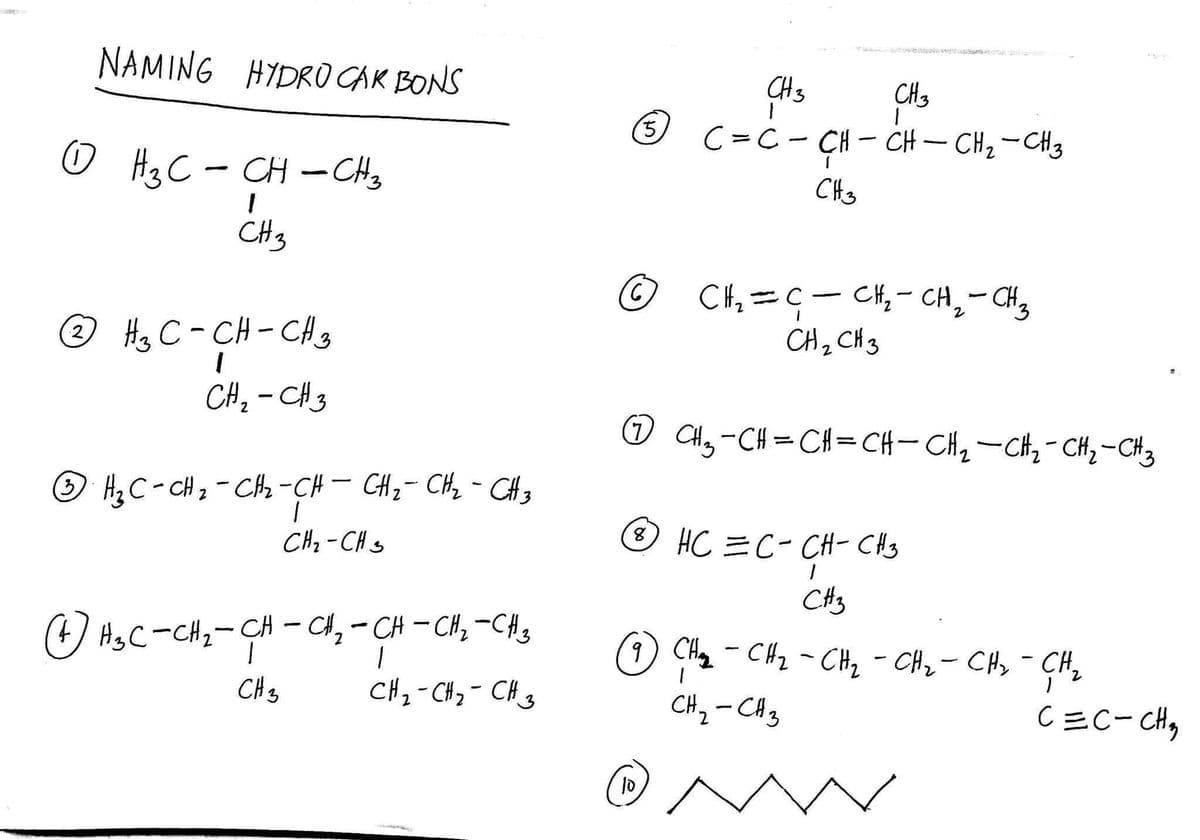 NAMING HYDROCARBONS
① H₃C – CH – CH₃
|
CH₃
② H₃C – CH – CH₃
|
CH₂ – CH₃
③ H₃C – CH₂ – CH₂ – CH – CH₂ – CH₂ – CH₃
|
CH₂ – CH₃
④ H₃C – CH₂ – CH – CH₂ – CH – CH₂ – CH₃
| |
CH₃ CH₂ – CH₂ – CH₃
CH₃ CH₃
| |
⑤ C = C – CH – CH – CH₂ – CH₃
|
CH₃
⑥ CH₂ = C – CH₂ – CH₂ – CH₃
|
CH₂CH₃
⑦ CH₃ – CH = CH = CH – CH₂ – CH₂ – CH₂ – CH₃
⑧ HC ≡ C – CH – CH₃
|
CH₃
⑨ CH₂ – CH₂ – CH₂ – CH₂ – CH₂ – CH₂
| |
CH₂ – CH₃ C ≡ C – CH₃
⑩